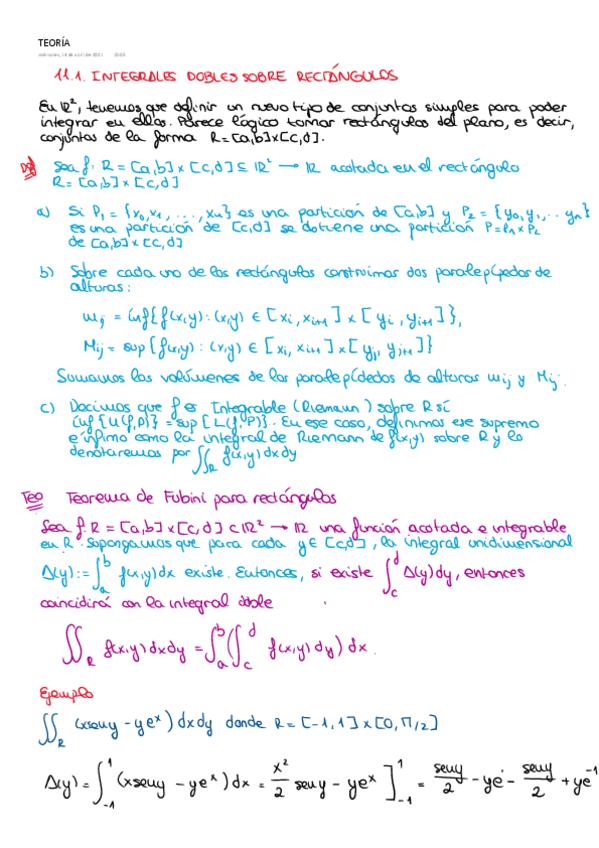 TEORÍA
11.1. INTEGRALES DOBLES SOBRE RECTÁNGULOS
En ℝ², tenemos que definir un nuevo tipo de conjuntos simples para poder
integrar en ellos. Parece lógico tomar rectángulos del plano, es decir,
conjuntos de la forma R=[a,b]x[c,d].
Def Sea f: R = [a,b] x [c,d] ⊆ ℝ² → ℝ acotada en el rectángulo
R= [a,b] x [c,d]
a) Si P₁ = {x₀,x₁, ..., xn} es una partición de [a,b] y P₂ = {y₀,y₁,.. yn}
es una partición de [c,d] se obtiene una partición P=P₁xP₂
de [a,b]x[c,d]
b) Sobre cada uno de los rectángulos construimos dos paralepípedos de
alturas:
mij = inf{f(x,y): (x,y) ∈ [xi, xi+1] x [yi, yi+1]},
Mij = sup{f(x,y): (x,y) ∈ [xi, xi+1]x[yj, yj+1]}
Sumamos los volúmenes de los paralepípedos de alturas mij y Mij.
c) Decimos que f es Integrable (Riemann) sobre R si
inf{U(f,P)} = sup{L(f,P)}. En ese caso, definimos ese supremo
e ínfimo como la integral de Riemann de f(x,y) sobre R y lo
denotaremos por ∬R f(x,y)dxdy
Teo Teorema de Fubini para rectángulos
Sea f: R = [a,b]x[c,d] ⊂ ℝ² → ℝ una función acotada e integrable
en R. Supongamos que para cada y∈[c,d], la integral unidimensional
A(y):= ∫_a^b f(x,y)dx existe. Entonces, si existe ∫_c^d A(y)dy, entonces
coincidirá con la integral doble
∬R f(x,y)dxdy = ∫_a^b(∫_c^d f(x,y)dy)dx.
Ejemplo
∬R (xseny - ye^x) dxdy donde R= [-1,1]x[0,π/2]
A(y) = ∫_-1^1 (xseny - ye^x)dx = x²/2 seny - ye^x ]_-1^1 = seny/2 - ye - seny/2 + ye^-1